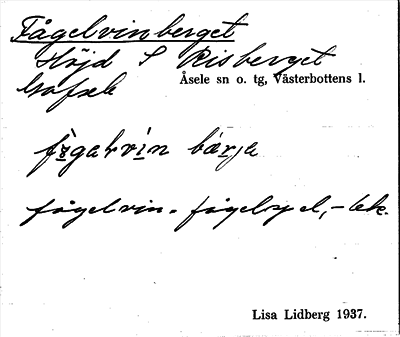 Fågelvinberget
Höjd S Risberget
Åsele sn o. tg, Västerbottens l.
fågelvin. fågelspel, -lek.
Lisa Lidberg 1937.